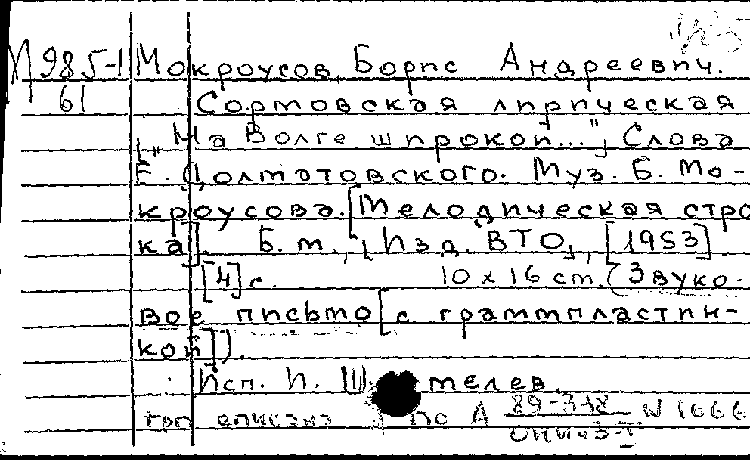 М 985-1 Мокроусов, Борис Андреевич.
61 Сормовская лирическая
["На Волге широкой..."]. Слова
Е. Долматовского. Муз. Б. Мо-
кроусова. [Мелодическая стро
ка]. Б. м., [Изд. ВТО], [1953]
[4] с. 10 x 16 см. (Звуко-
вое письмо [с грампластин-
кой]).
Исп. И. Ш мелев.
по А 89-378 N 1666